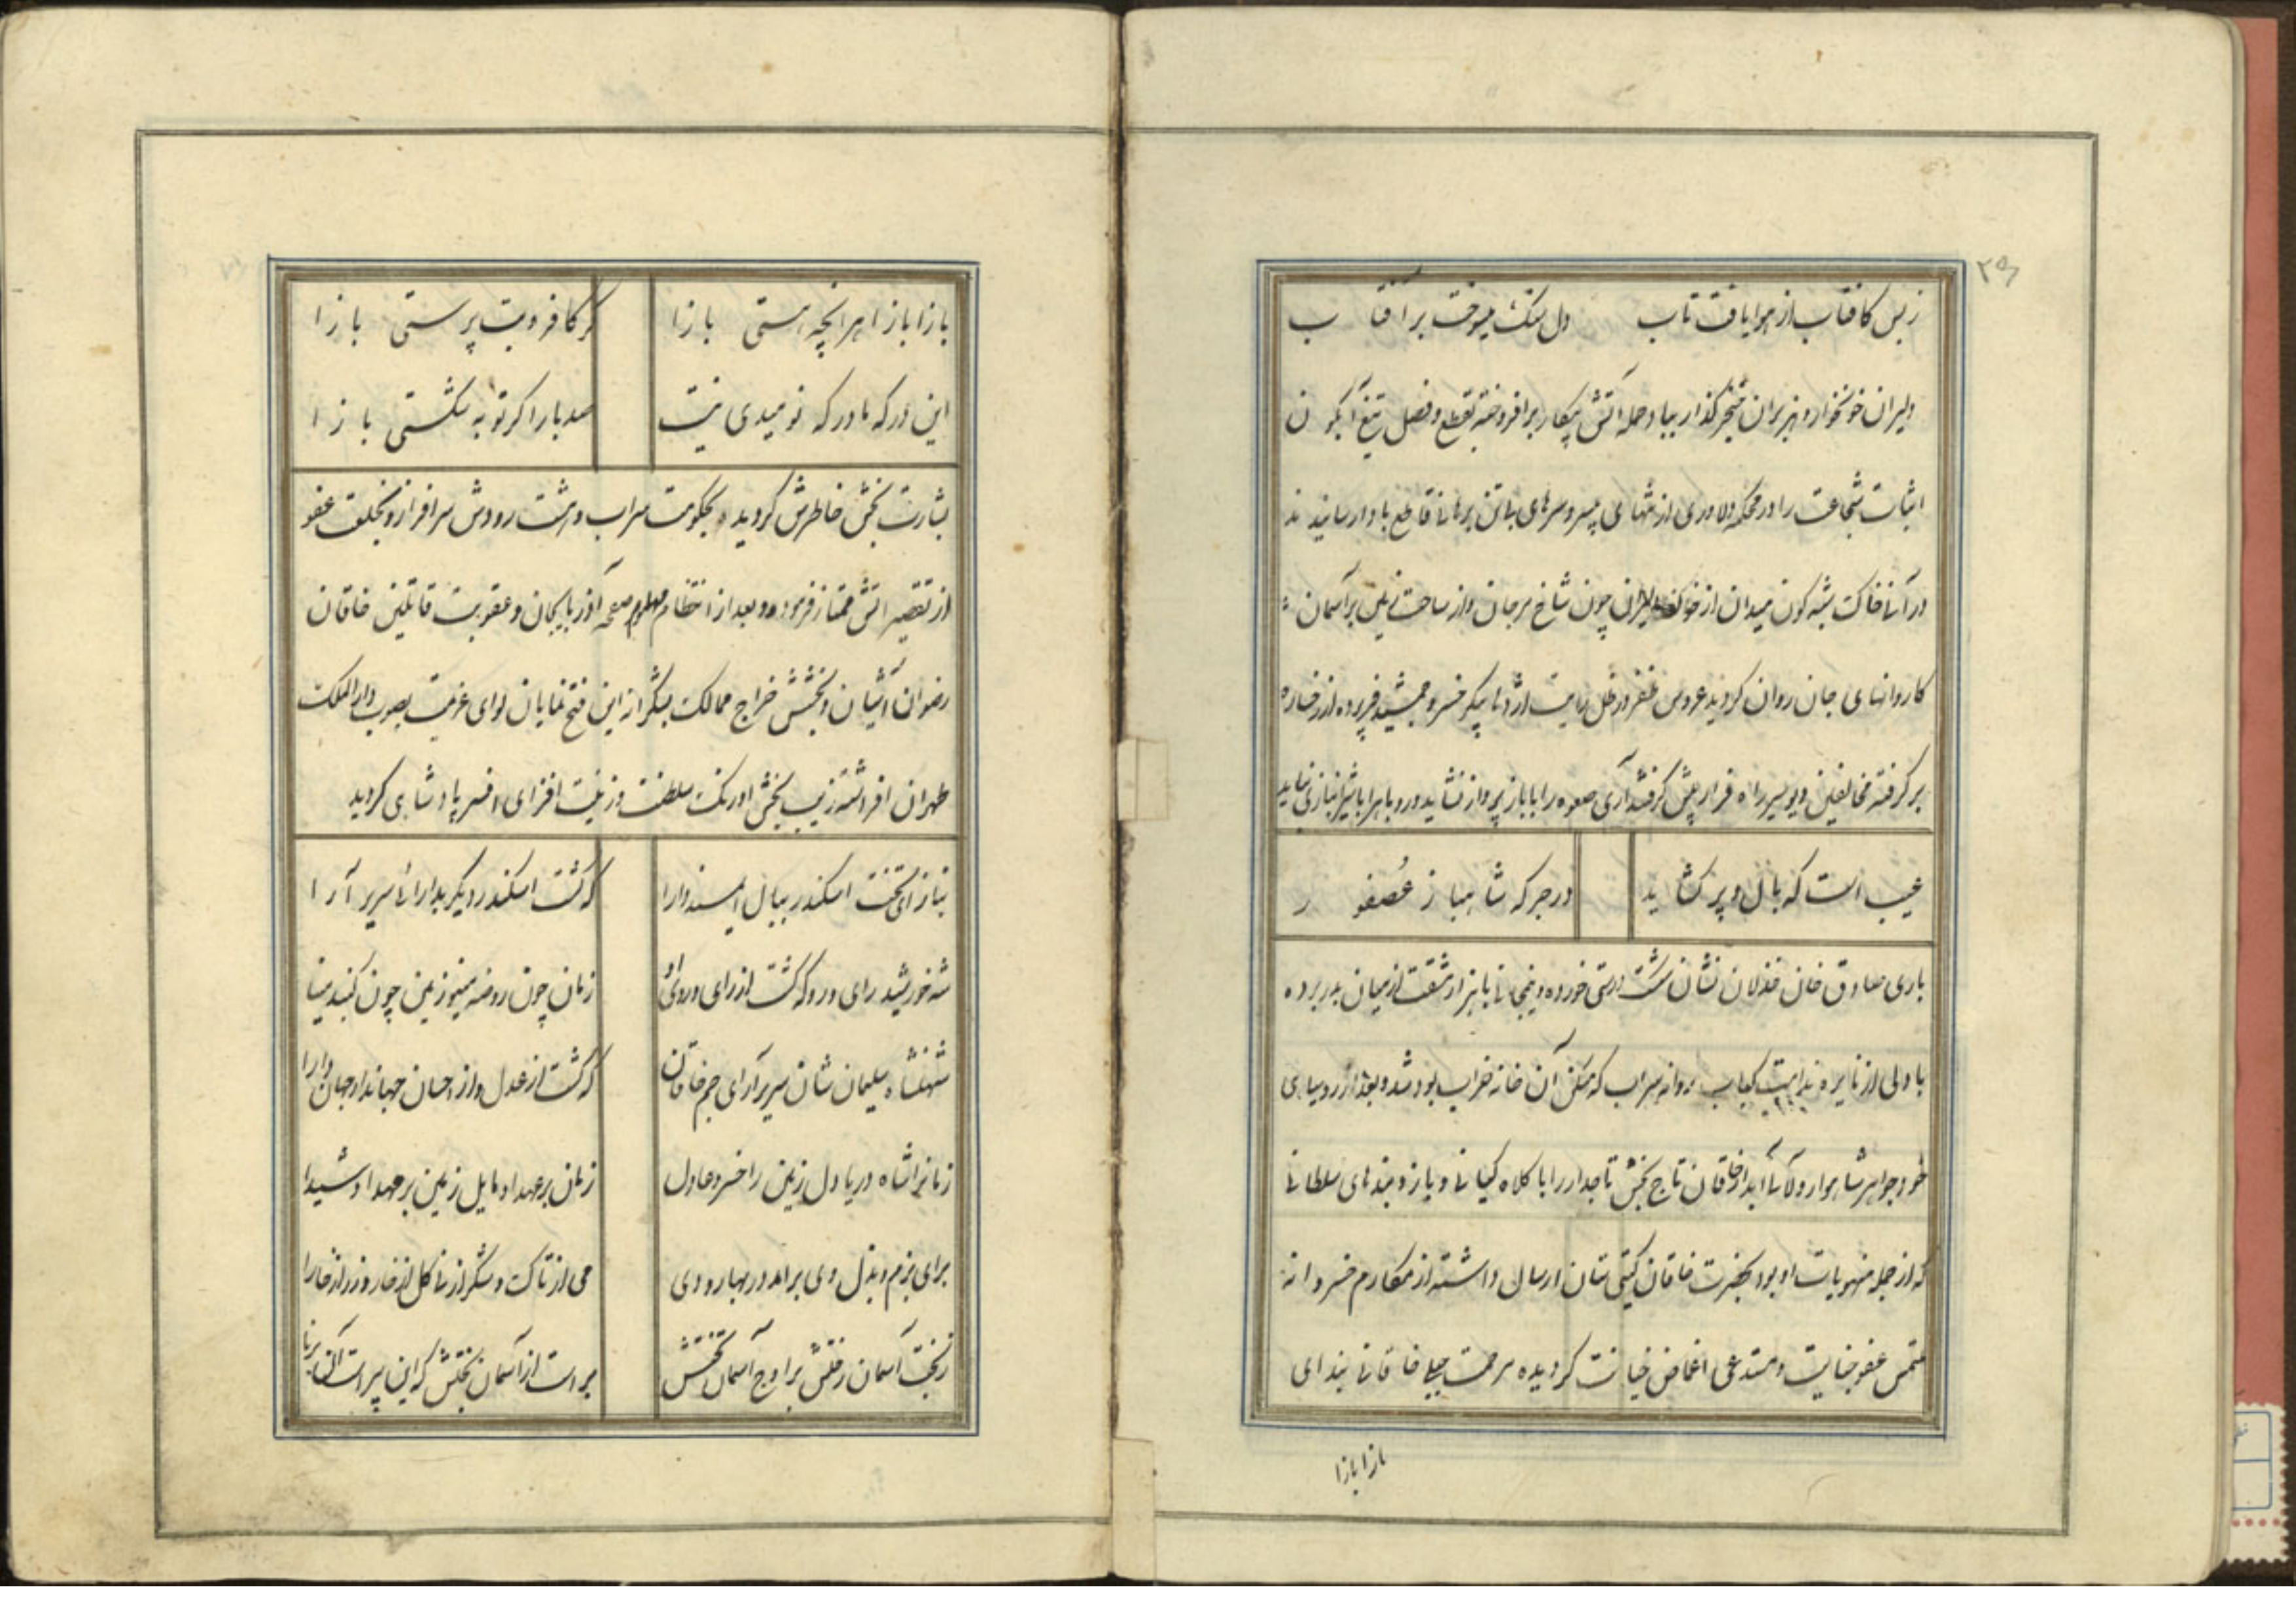 ز بس کافتاب از هوا یافت تاب دل سنک میسوخت بر آفتاب
دلیران خونخوار و هزبران خنجر گذار بباد حمله آتش پیکار برافروخته بقطع و فصل تیغ آبگون
اثبات شجاعت را در محکمه دلاوری از تنهای بیسر و سرهای بی تن برهانی قاطع باد ارسانیدند
در آنی خاکت بشه کون میدان از خون دلیران چون شاخ مرجان و از ساحت زمین بر آسمان
کاروانهای جان روان کردید عروس ظفر در ظل رایت اژدها پیکر خسرو جمشید فر پرده از رخساره
بر کرفته مخالفین دیو سیر راه فرار پیش کرفتند آری صعوه را با باز پرواز نشاید و روباه را با شیر انبازی نباید
عیب است که بال و پر کشاید در جرکه شاهباز عصفور
باری صادق خان خذلان نشان شکست درستی خورده و نیمجانی با هزار مشقت از میان بدر برده
با دلی از نایره ندامت کباب روانه سراب که مسکن آن خانه خراب بود شد و بعد از روسیاهی
خود جواهر شاهوار و لآلی آبدار خاقان تاج بخش تاجدار را با کلاه کیانی و بازوبندهای سلطانی
که از جمله منهوبات او بود بحضرت خاقان گیتی ستان ارسال داشته از مکارم خسروانه
ملتمس عفو جنایت و مستدعی اغماض خیانت کردیده مرحمت جبلی خاقانی بندای
بازا بازا
بازا بازا هر آنچه هستی بازا کر کافر و بت پرستی بازا
این درکه ما درکه نومیدی نیست صد بار اکر توبه شکستی بازا
بشارت بخش خاطرش کردیده بحکومت سراب و گرمرود سرافراز و بخلعت عفو
از تقصیراتش ممتاز فرموده و بعد از انتظام مهام صفحه آذربایجان و عقوبت قاتلین خاقان
رضوان آشیان و بخشش خراج ممالک بشکرانه این فتح نمایان لوای عزیمت بصوب دارالملک
طهران افراشته زیب بخش اورنک سلطنت و زینت افزای افسر پادشاهی کردید
بناز ای تخت اسکندر ببال ای مسند دارا که کشت اسکندر دیکر بدارائی سریر آرا
شه خورشید رای و رو که کشت از رای و روی او زمان چون روضه مینو زمین چون کنبد مینا
شهنشاه سلیمان شان سریر آرای جم خاقان که کشت از عدل و از احسان جهاندار و جهان دارا
زمانرا شاه دریا دل زمین را خسرو عادل زمان بر عهد او مایل زمین بر مهد او شیدا
برای بزم و بذل وی برآمد در بهار و دی می از تاک و شکر از نی کل از خار و زر از خارا
ز بخت آسمان رخشش بر اوج آسمان تختش بر است از آسمان بختش که این پیر است آن برنا